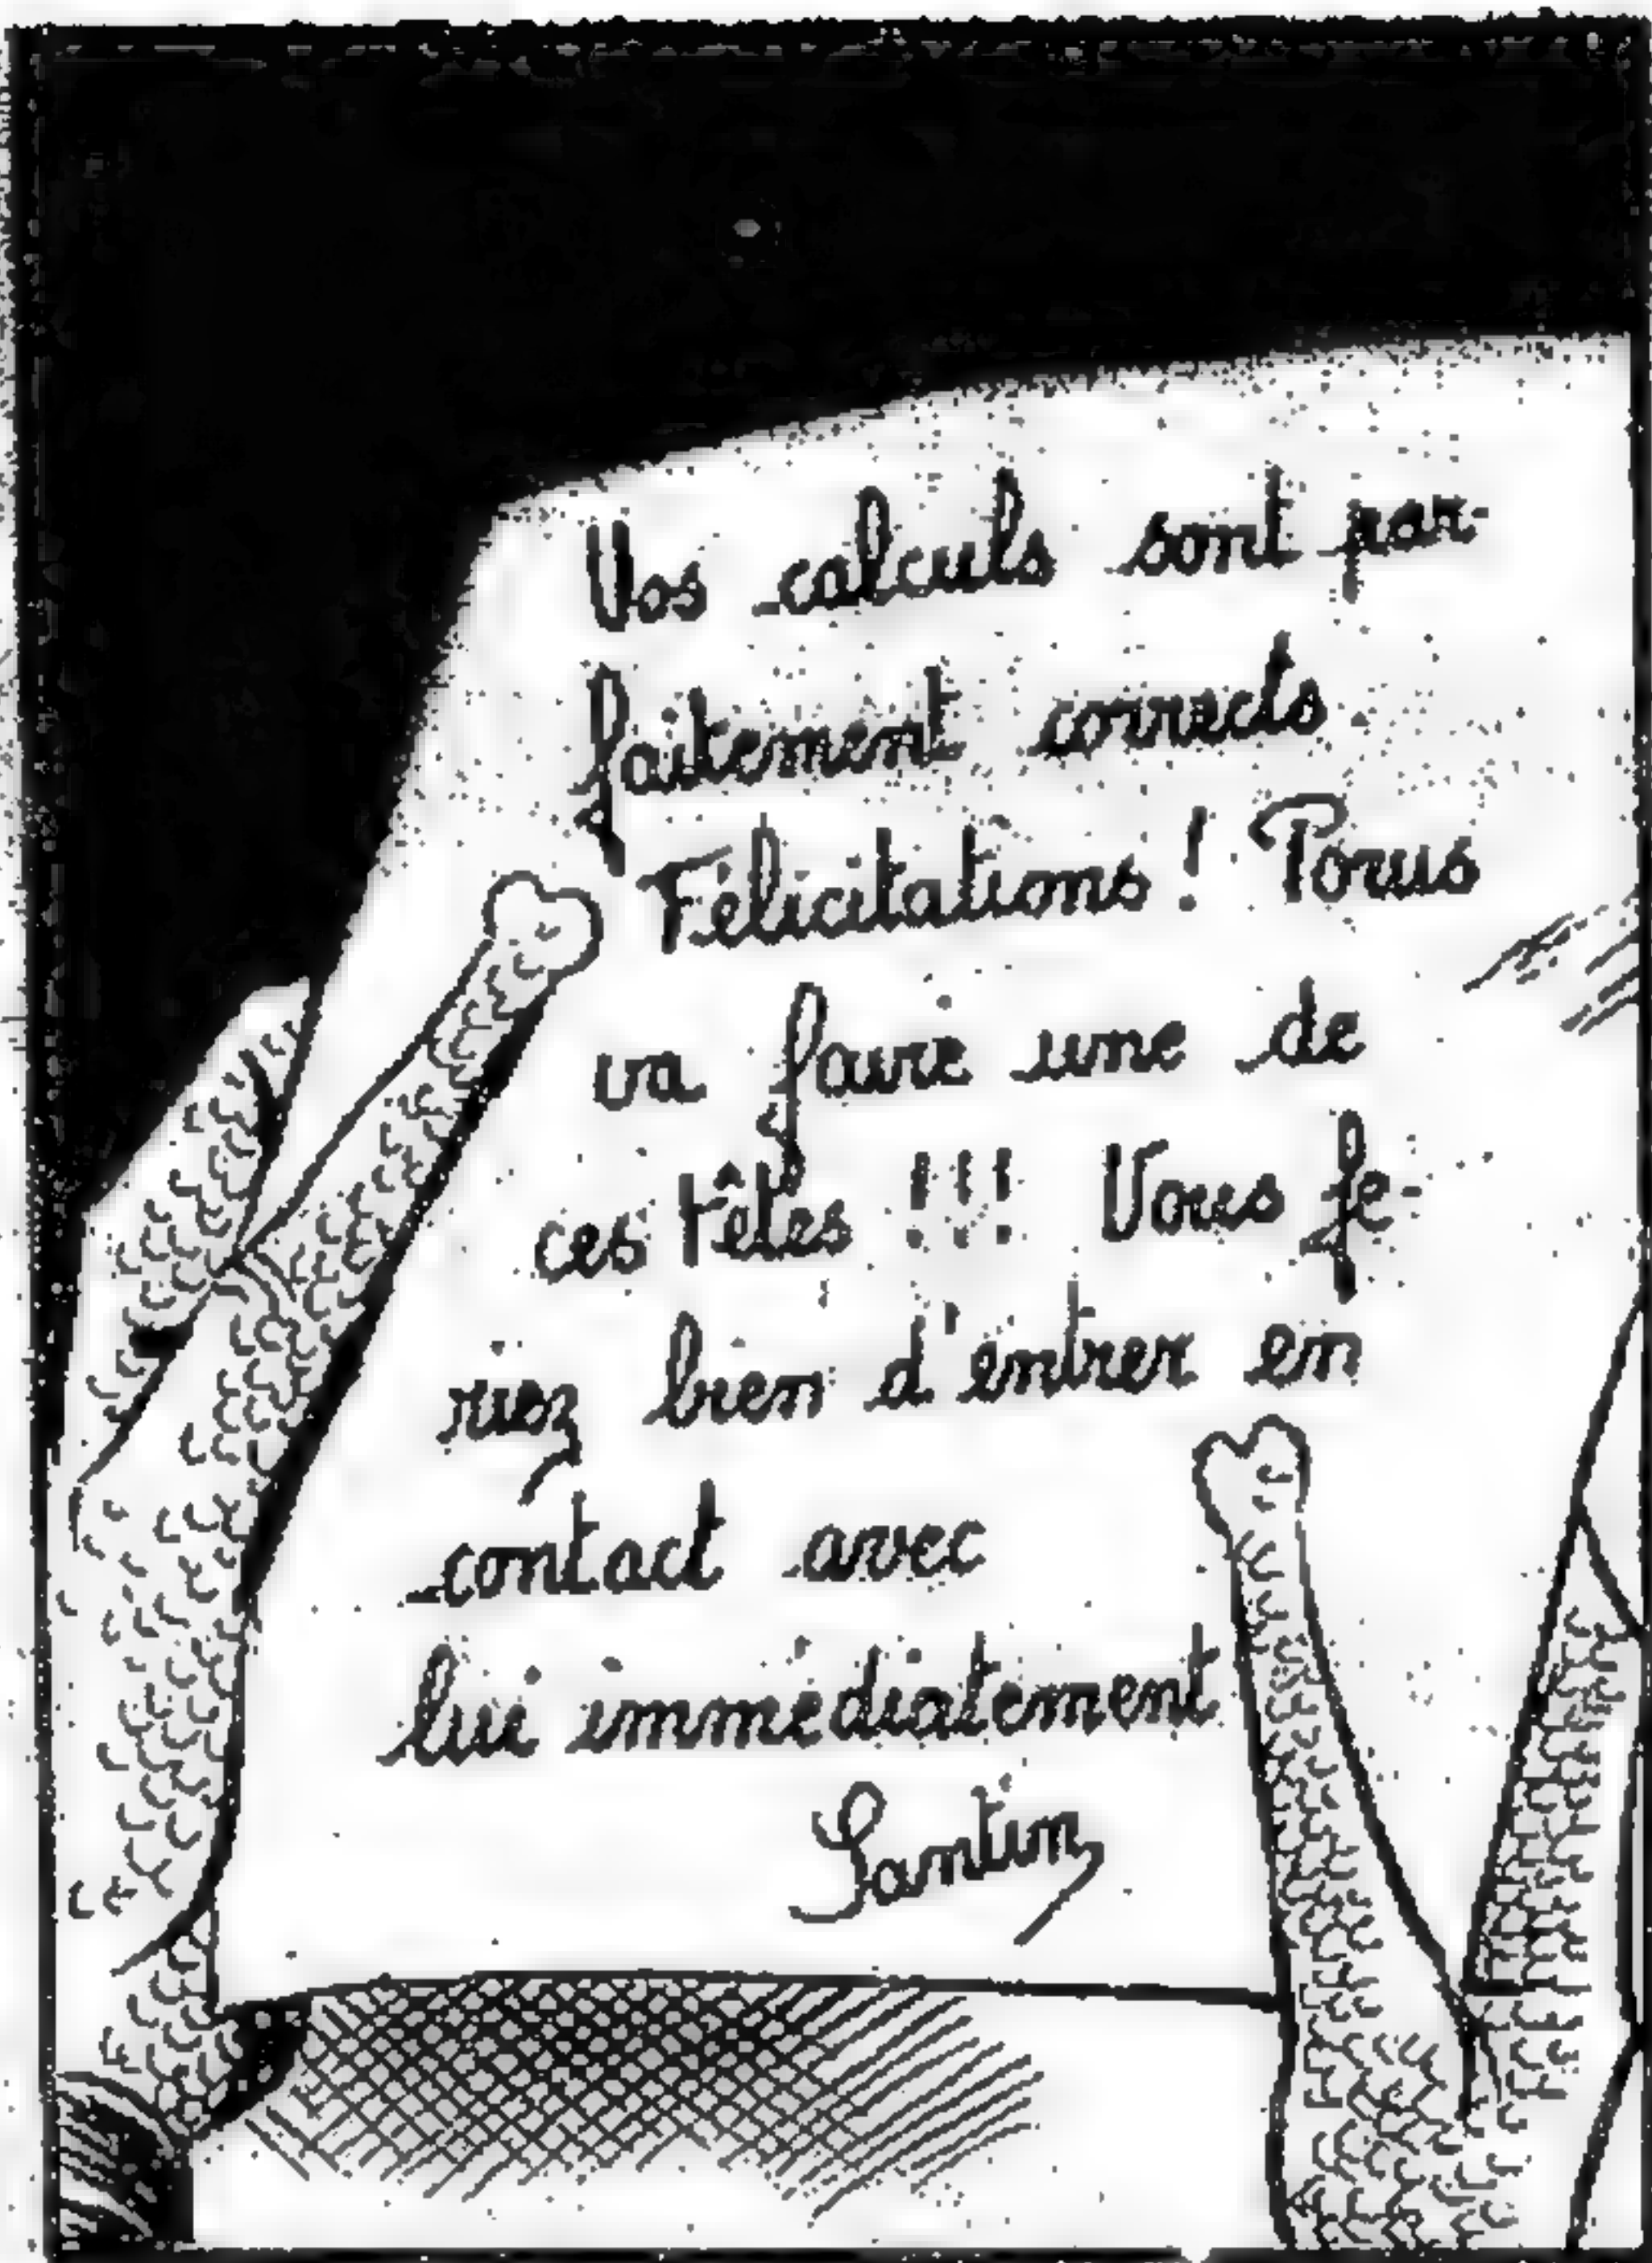 Vos calculs sont par-
faitement corrects
Félicitations ! Porus
va faire une de
ces têtes !!! Vous fe-
riez bien d'entrer en
contact avec
lui immédiatement
Santin